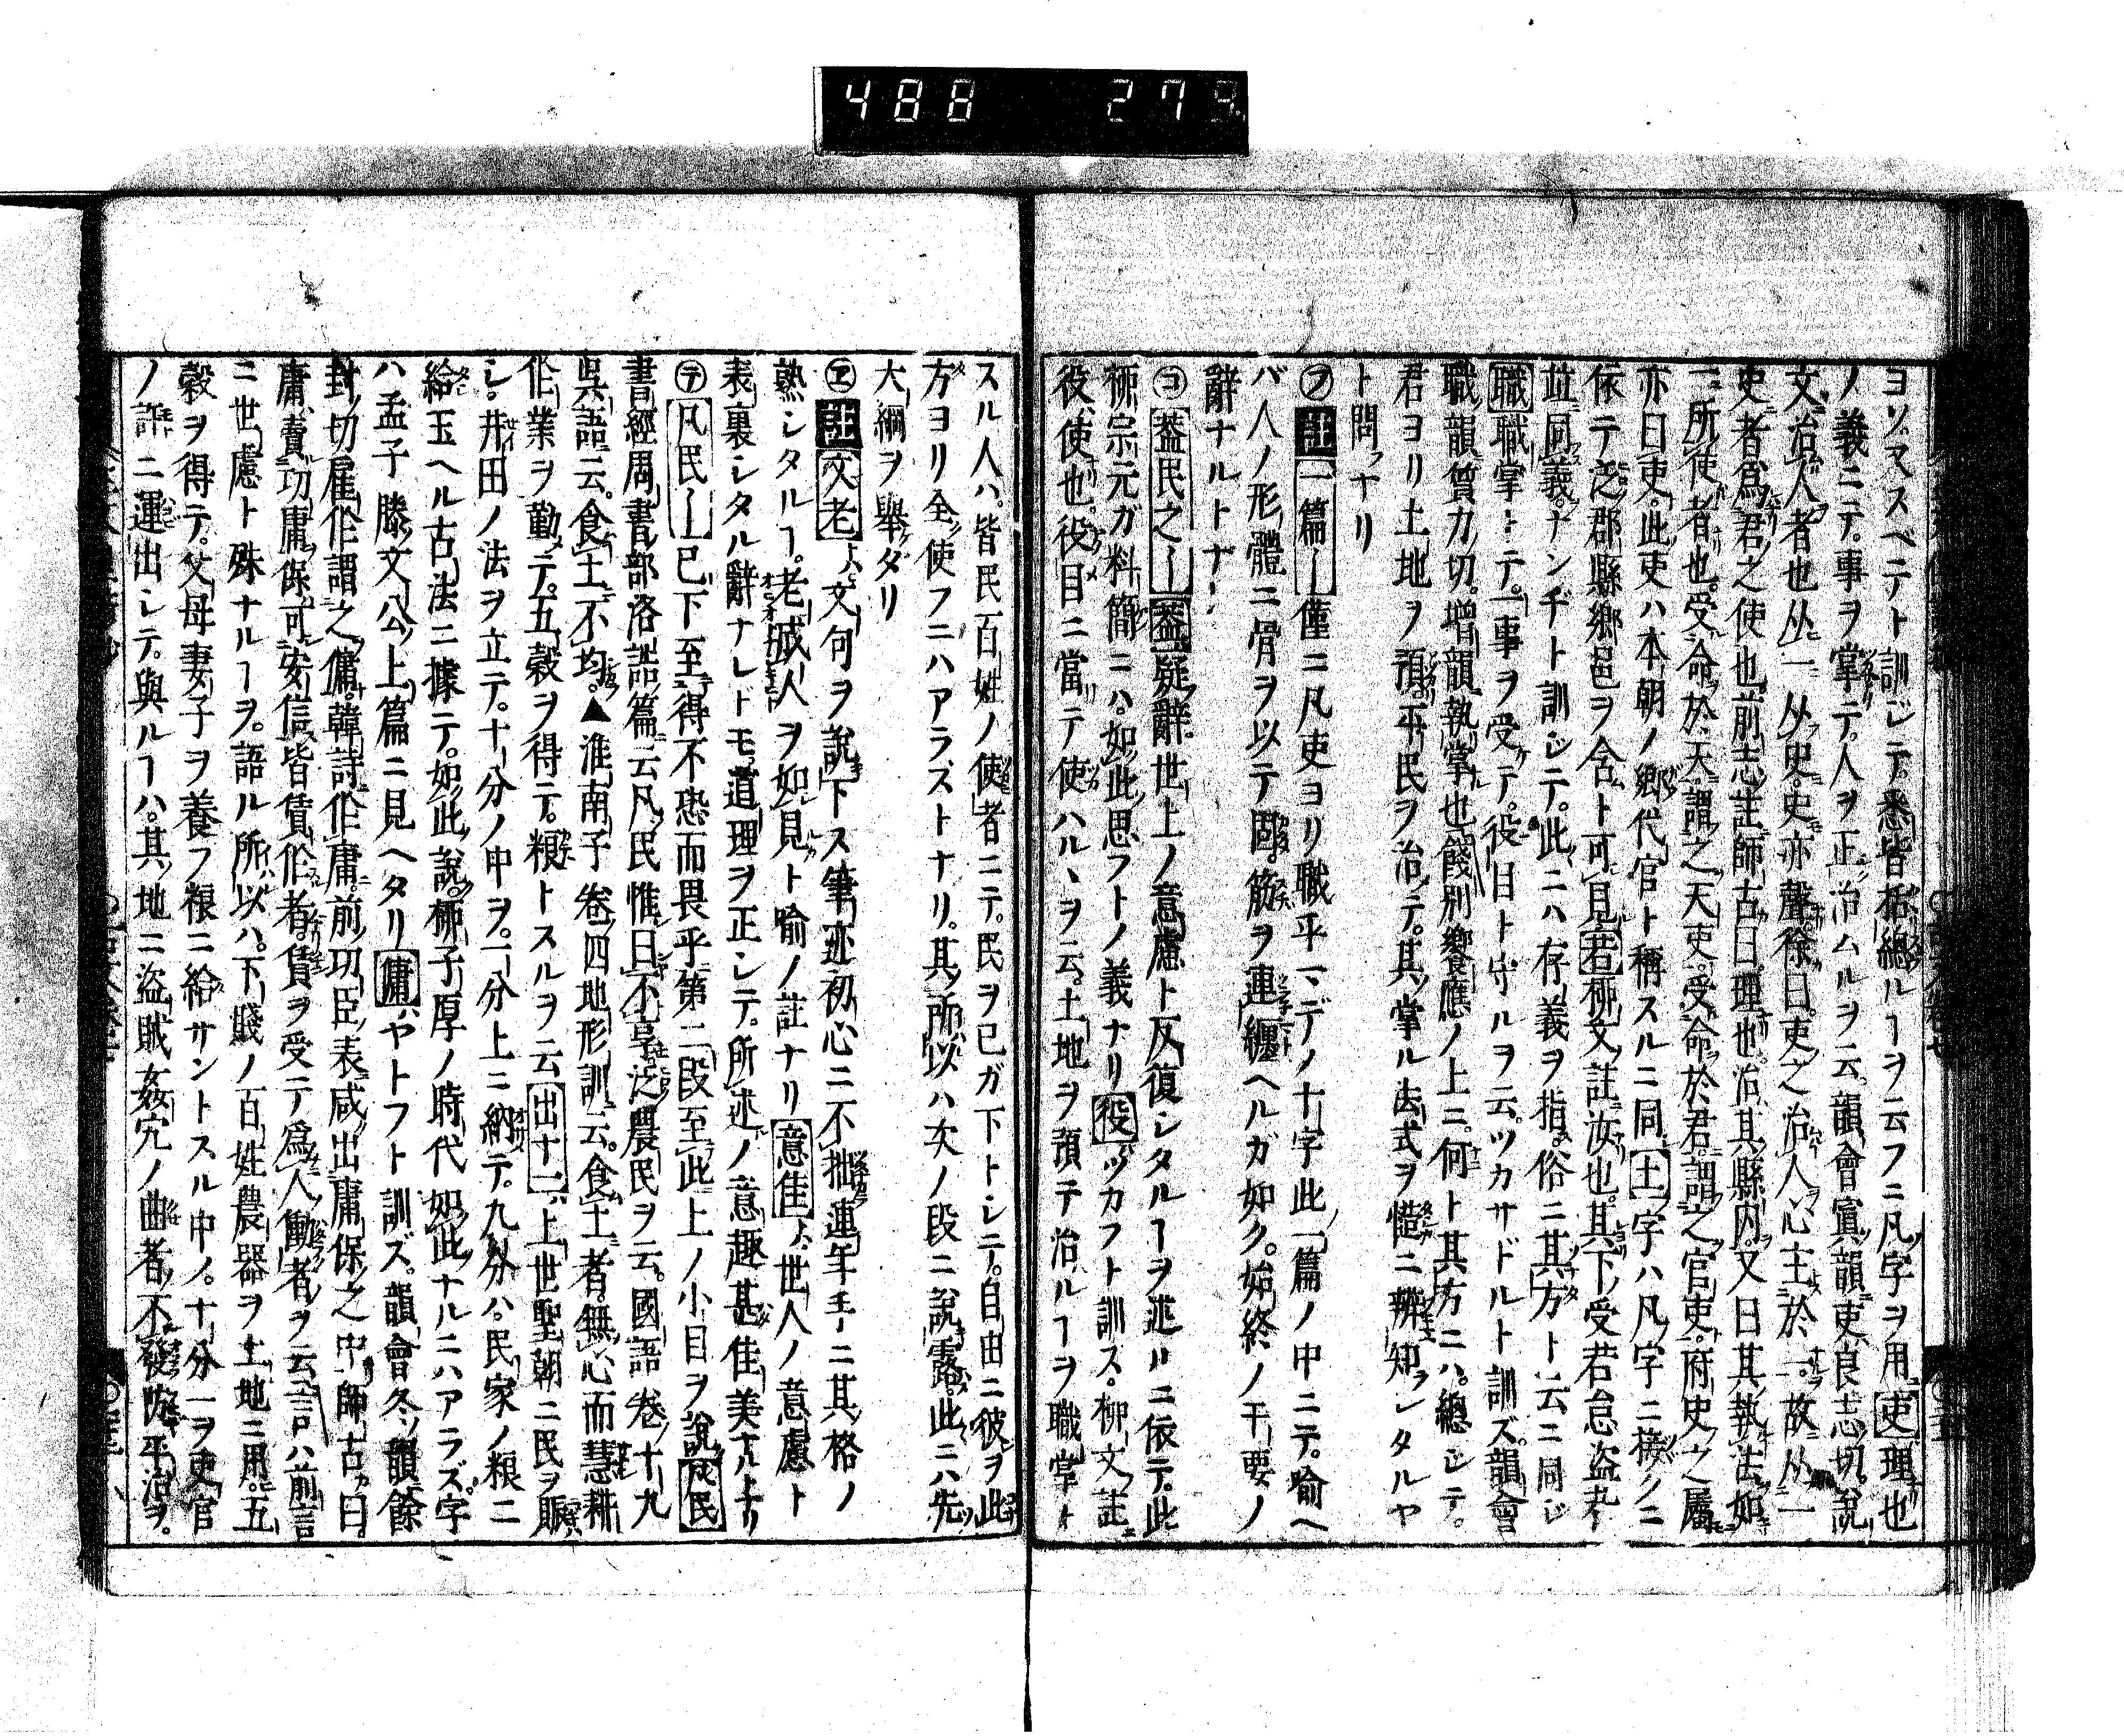 488 279
ヨソスベテト訓ジテ悉皆括總ルヿヲ云フニ凡字ヲ用吏理也
ノ義ニテ事ヲ掌テ人ヲ正シ治ムルヲ云韻會寘韻吏良志切說
文治人者也从一从史史亦聲徐曰吏之治人心主於一故从一
吏者爲君之使也前志註師古曰理也治其縣内又曰其執法如
所使者也受命於天謂之天吏受命於君謂之官吏府史之屬
亦曰吏此吏ハ本朝ノ郷代官ト稱スルニ同土字ハ凡字ニ接クニ
依テ泛郡縣郷邑ヲ含ト可見若柳文註汝也其下受若怠盗
並同義ナンヂト訓シテ此ニハ存義ヲ指俗ニ其方ト云ニ同ジ
職職掌トテ一事ヲ受テ役目ト守ルヲ云ツカサドルト訓ズ韻會
職韻質力切増韻執掌也餞別饗應ノ上ニ何ト其方ニハ總シテ
君ヨリ土地ヲ預平民ヲ治テ其掌ル法式ヲ慥ニ辨知シタルヤ
ト問フナリ
フ註一篇〡僅ニ凡吏ヨリ職乎マデノ十字此一篇ノ中ニテ喩ヘ
バ人ノ形體ニ骨ヲ以テ固筋ヲ連纏ヘルガ如ク始終ノ干要ノ
辭ナルトナ
コ葢民之〡葢疑辭世上ノ意慮ト反復シタルヿヲ述ルニ依テ此
柳宗元ガ料簡ニハ如此思フトノ義ナリ役ツカフト訓ス柳文註
役使也役目ニ當テ使ハルヽヲ云土地ヲ預テ治ルヿヲ職掌ト
スル人ハ皆民百姓ノ使者ニテ民ヲ已ガ下トシテ自由ニ彼ヲ此
方ヨリ全使フニハアラズトナリ其所以ハ次ノ段ニ說露此ニハ先
大綱ヲ舉ダリ
ヱ註文老文句ヲ說下ス筆迹初心ニ不拙連年ニ其格ノ
熟シタルヿ老成人ヲ如見ト喩ノ註ナリ意佳世人ノ意慮ト
表裏シタル辭ナレドモ道理ヲ正シテ所述ノ意趣甚佳美ナルトナリ
テ凡民〡已下至得不恐而畏乎第二段至此上ノ小目ヲ說凡民
書經周書部洛誥篇云凡民惟曰不享泛農民ヲ云國語卷十九
呉語云食土不均▲淮南子卷四地形訓云食土者無心而慧耕
作業ヲ勤テ五穀ヲ得テ粮トスルヲ云出十一上世聖朝ニ民ヲ賑
シ井田ノ法ヲ立テ十分ノ中ヲ一分上ニ納テ九分ハ民家ノ粮ニ
給玉ヘル古法ニ據テ如此說柳子厚ノ時代如此ナルニハアラズ字
ハ孟子滕文公上篇ニ見ヘタリ傭ヤトフト訓ズ韻會冬韻餘
封切雇作謂之傭韓詩作庸前功臣表咸出庸保之中師古曰
庸賣功庸保可安信皆賃作者賃ヲ受テ爲人働者ヲ云言ハ前言
ニ世慮ト殊ナルヿヲ語ル所以ハ下賤ノ百姓農器ヲ土地ニ用五
穀ヲ得テ父母妻子ヲ養フ粮ニ給サントスル中ノ十分一ヲ吏官
ノ許ニ運出シテ與ルヿハ其地ニ盗賊姦宄ノ曲者不發防平治ヲ